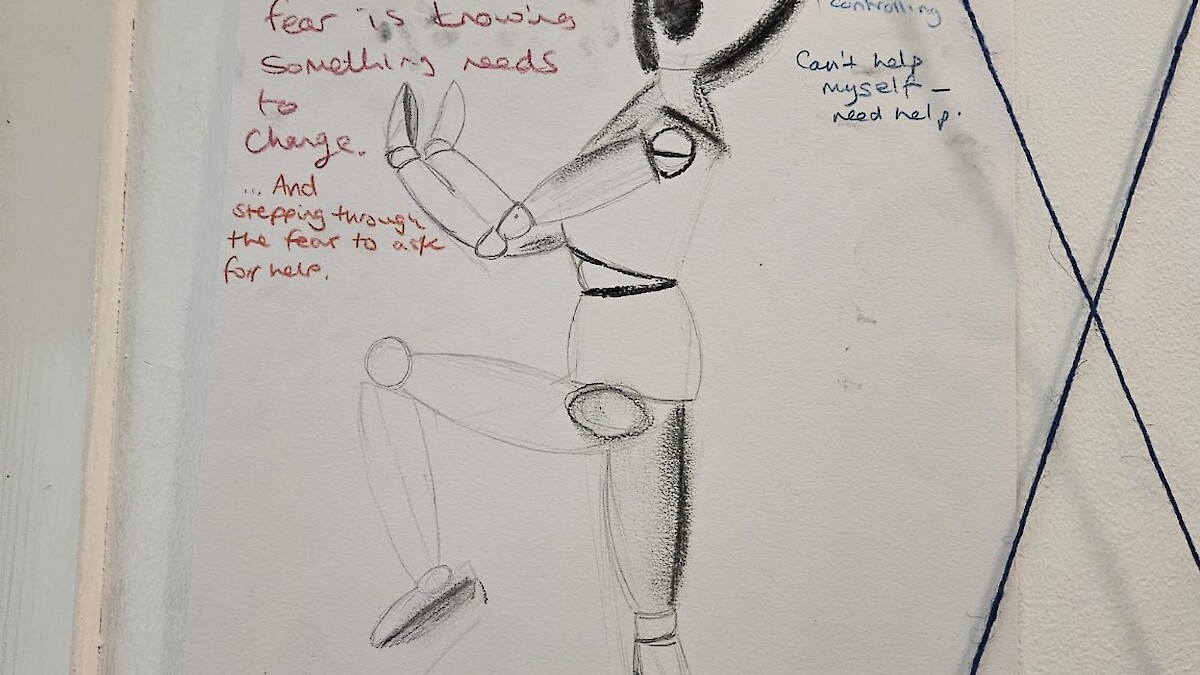 fear is knowing
something needs
to
Change.
... And
stepping through
the fear to ask
for help.
controlling
Can't help
myself –
need help.